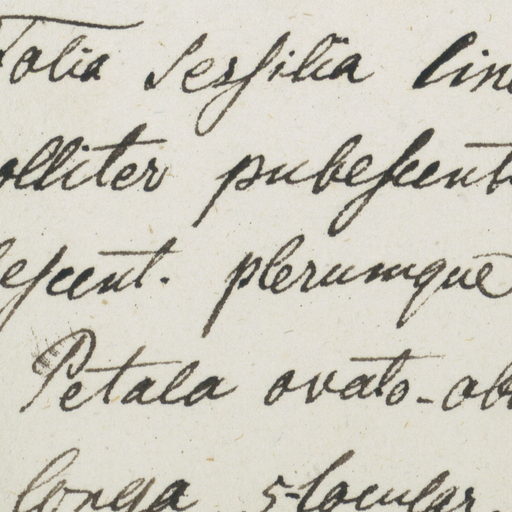 Folia sessilia lin
olliter pubescent
escent. plerumque
Petala ovato-ob
longa 5-locular.